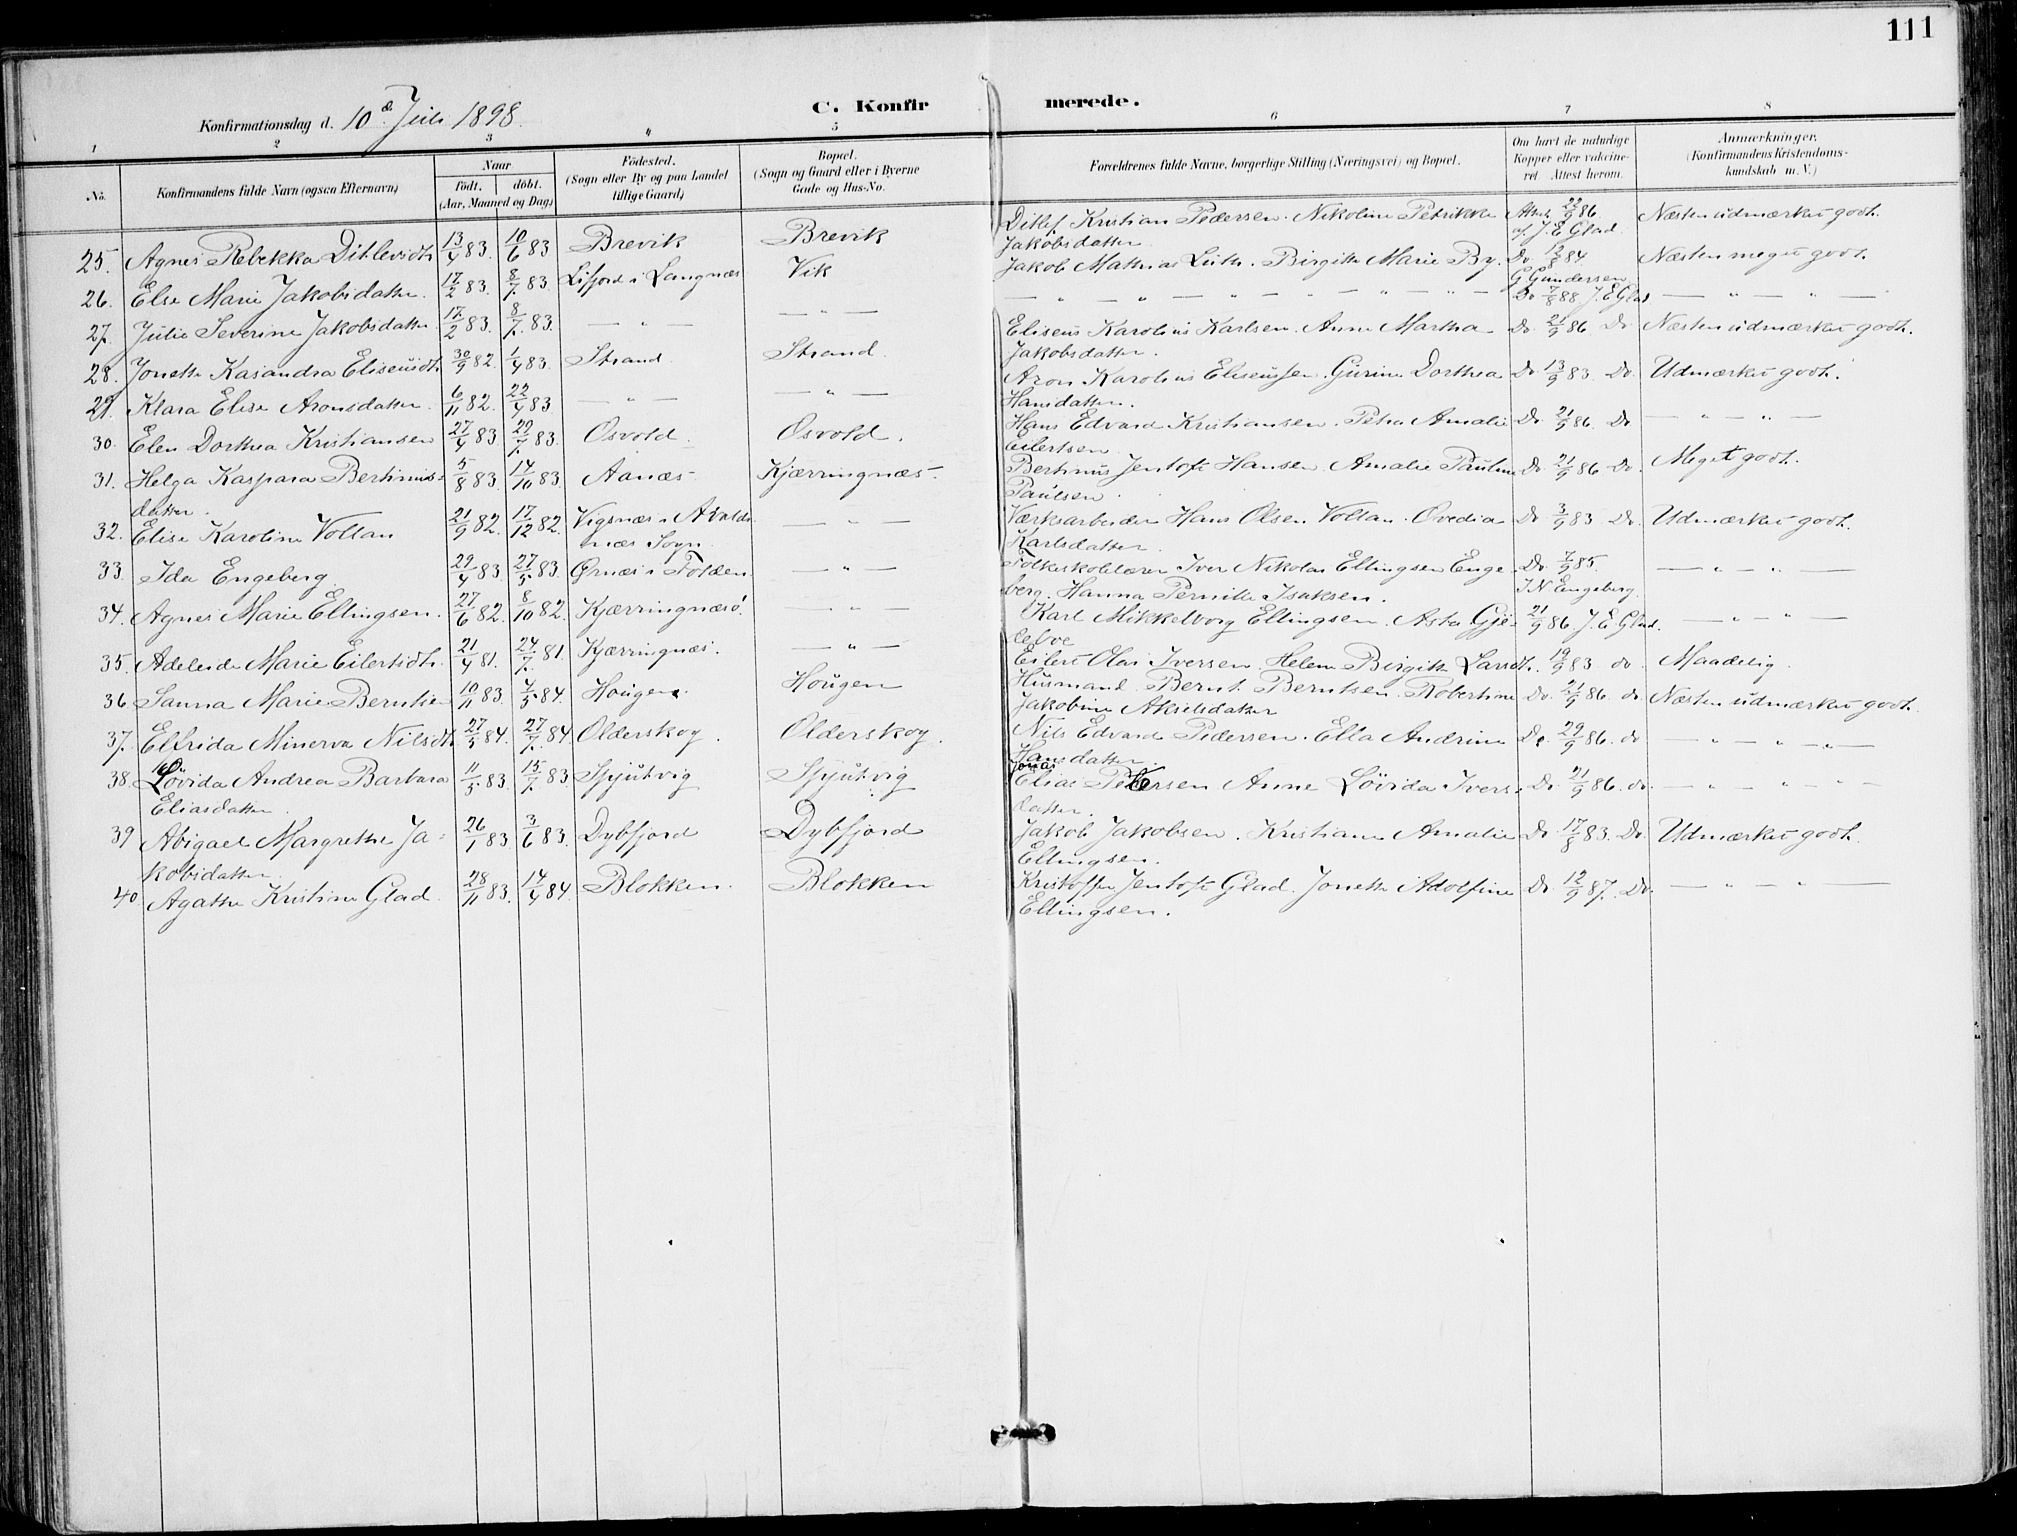 111
C. Konfirmerede.
Konfirmationsdag d. 10de Juli 1898.
1 2 3 4 5 6 7 8
No. Konfirmandens fulde Navn (ogsaa Efternavn) Naar født. døbt. (Aar, Maaned og Dag) Fødested. (Sogn eller By og paa Landet tillige Gaard) Bopæl. (Sogn og Gaard eller i Byerne Gade og Hus-No. Forældrenes fulde Navne, borgerlige Stilling (Næringsvei) og Bopæl. Om havt de naturlige Kopper eller vakcineret. Attest herom. Anmærkninger. (Konfirmandens Kristendomskundskab m. V.)
25. Agnes Rebekka Ditlevsdtr 13/4 83. 10/6 83 Brevik Brevik Ditlef Kristian Pedersen. Nikoline Petrikke Jakobsdatter Attest 22/9 86. af J. E Glad Næsten udmærket godt.
26. Else Marie Jakobsdatter. 17/2 83. 8/7. 83 Lifjord i Langnæs Vik Jakob Mathias Lüth. Birgitte Marie By. Do 12/8 84 G Gundersen Næsten meget godt.
27. Julie Severine Jakobsdatter 17/2 83. 8/7. 83. — " — — " — — " — " — " — " — " — Do 7/8 88 J. E Glad — " — " —
28. Jonette Kasandra Eliseusdtr 30/9 82. 1/4 83. Strand Strand Eliseus Karolius Karlsen. Anne Martha Jakobsdatter. Do 21/9 86 Do Næsten udmærket godt.
29. Klara Elise Aronsdatter. 6/11 82. 22/4 83 — " — — " — Aron Karolius Eliseussen. Gurine Dorthea Hansdatter. Do 13/9 83. Do. Udmærket godt.
30. Elen Dorthea Kristiansen 27/4 83 29/7. 83. Osvold. Osvold. Hans Edvard Kristiansen. Petra Amalie Eilertsen Do 21/9 86. Do — " — " —
31. Helga Kaspara Bertinus- datter. 5/8 83. 14/10 83. Aanæs Kjærringnæs. Bertinus Jentoft Hansen Amalie Pauline Paulsen. Do 21/9 86 Do. Meget godt.
32. Elise Karoline Vollan 21/9 82. 17/12 82. Vigsnæs i Avalds næs Sogn — " — Værksarbeider Hans Olsen Vollan. Ovedia Karlsdatter. Do 3/9 83. Do. Udmærket godt.
33. Ida Engeberg. 29/4 83. 27/5 83. Ørnæs i Folden — " — Folkeskolelærer Iver Nikolai Ellingsen Enge- berg. Hanna Pernille Isaksen. Do. 7/9 85. I N Engeberg. — " — " —
34. Agnes Marie Ellingsen. 27/6 82. 8/10 82. Kjærringnæsø. — " — Karl Mikkelborg Ellingsen. Asta Gje- 21/9 86 J. E Glad. — " — " —
35. Adeleide Marie Eilertsdtr. 21/4 81. 24/7. 81. Kjærringnæs. — " — Eilert Olai Iversen. Helene Birgitte Larsdtr. 19/9 83. do. Maadelig.
36 Sanna Marie Berntsen 10/11 83. 4/5 84. Hougen. Hougen Husmand. Bernt. Berntsen. Robertine Jakobine Akselsdatter Do. 21/9 86. do. Næsten udmærket godt.
37. Elfrida Minerva Nilsdtr 27/5 84. 27/7. 84. Olderskog. Olderskog. Nils Edvard Pedersen. Ella Andrine Hansdatter. Do. 29/9 86. do — " — " —
38. Løvida Andrea Barbara Eliasdatter. 11/5 83. 15/7. 83 Spjutvig Spjutvig Jonas Elias Petersen Anne Løvida Ivers- datter. Do. 21/9 86. do. — " — " —
39 Abigael Margrethe Ja- kobsdatter. 26/1 83 3/6 83. Dybfjord Dybfjord Jakob Jakobsen. Kristiane Amalie Ellingsen. Do. 17/8 83. Do. Udmærket godt.
40 Agathe Kristine Glad. 28/11 83. 14/4 84. Blokken. Blokken Kristoffer Jentoft Glad. Jonette Adolfine Ellingsen. Do. 12/9 87. Do. — " — " —